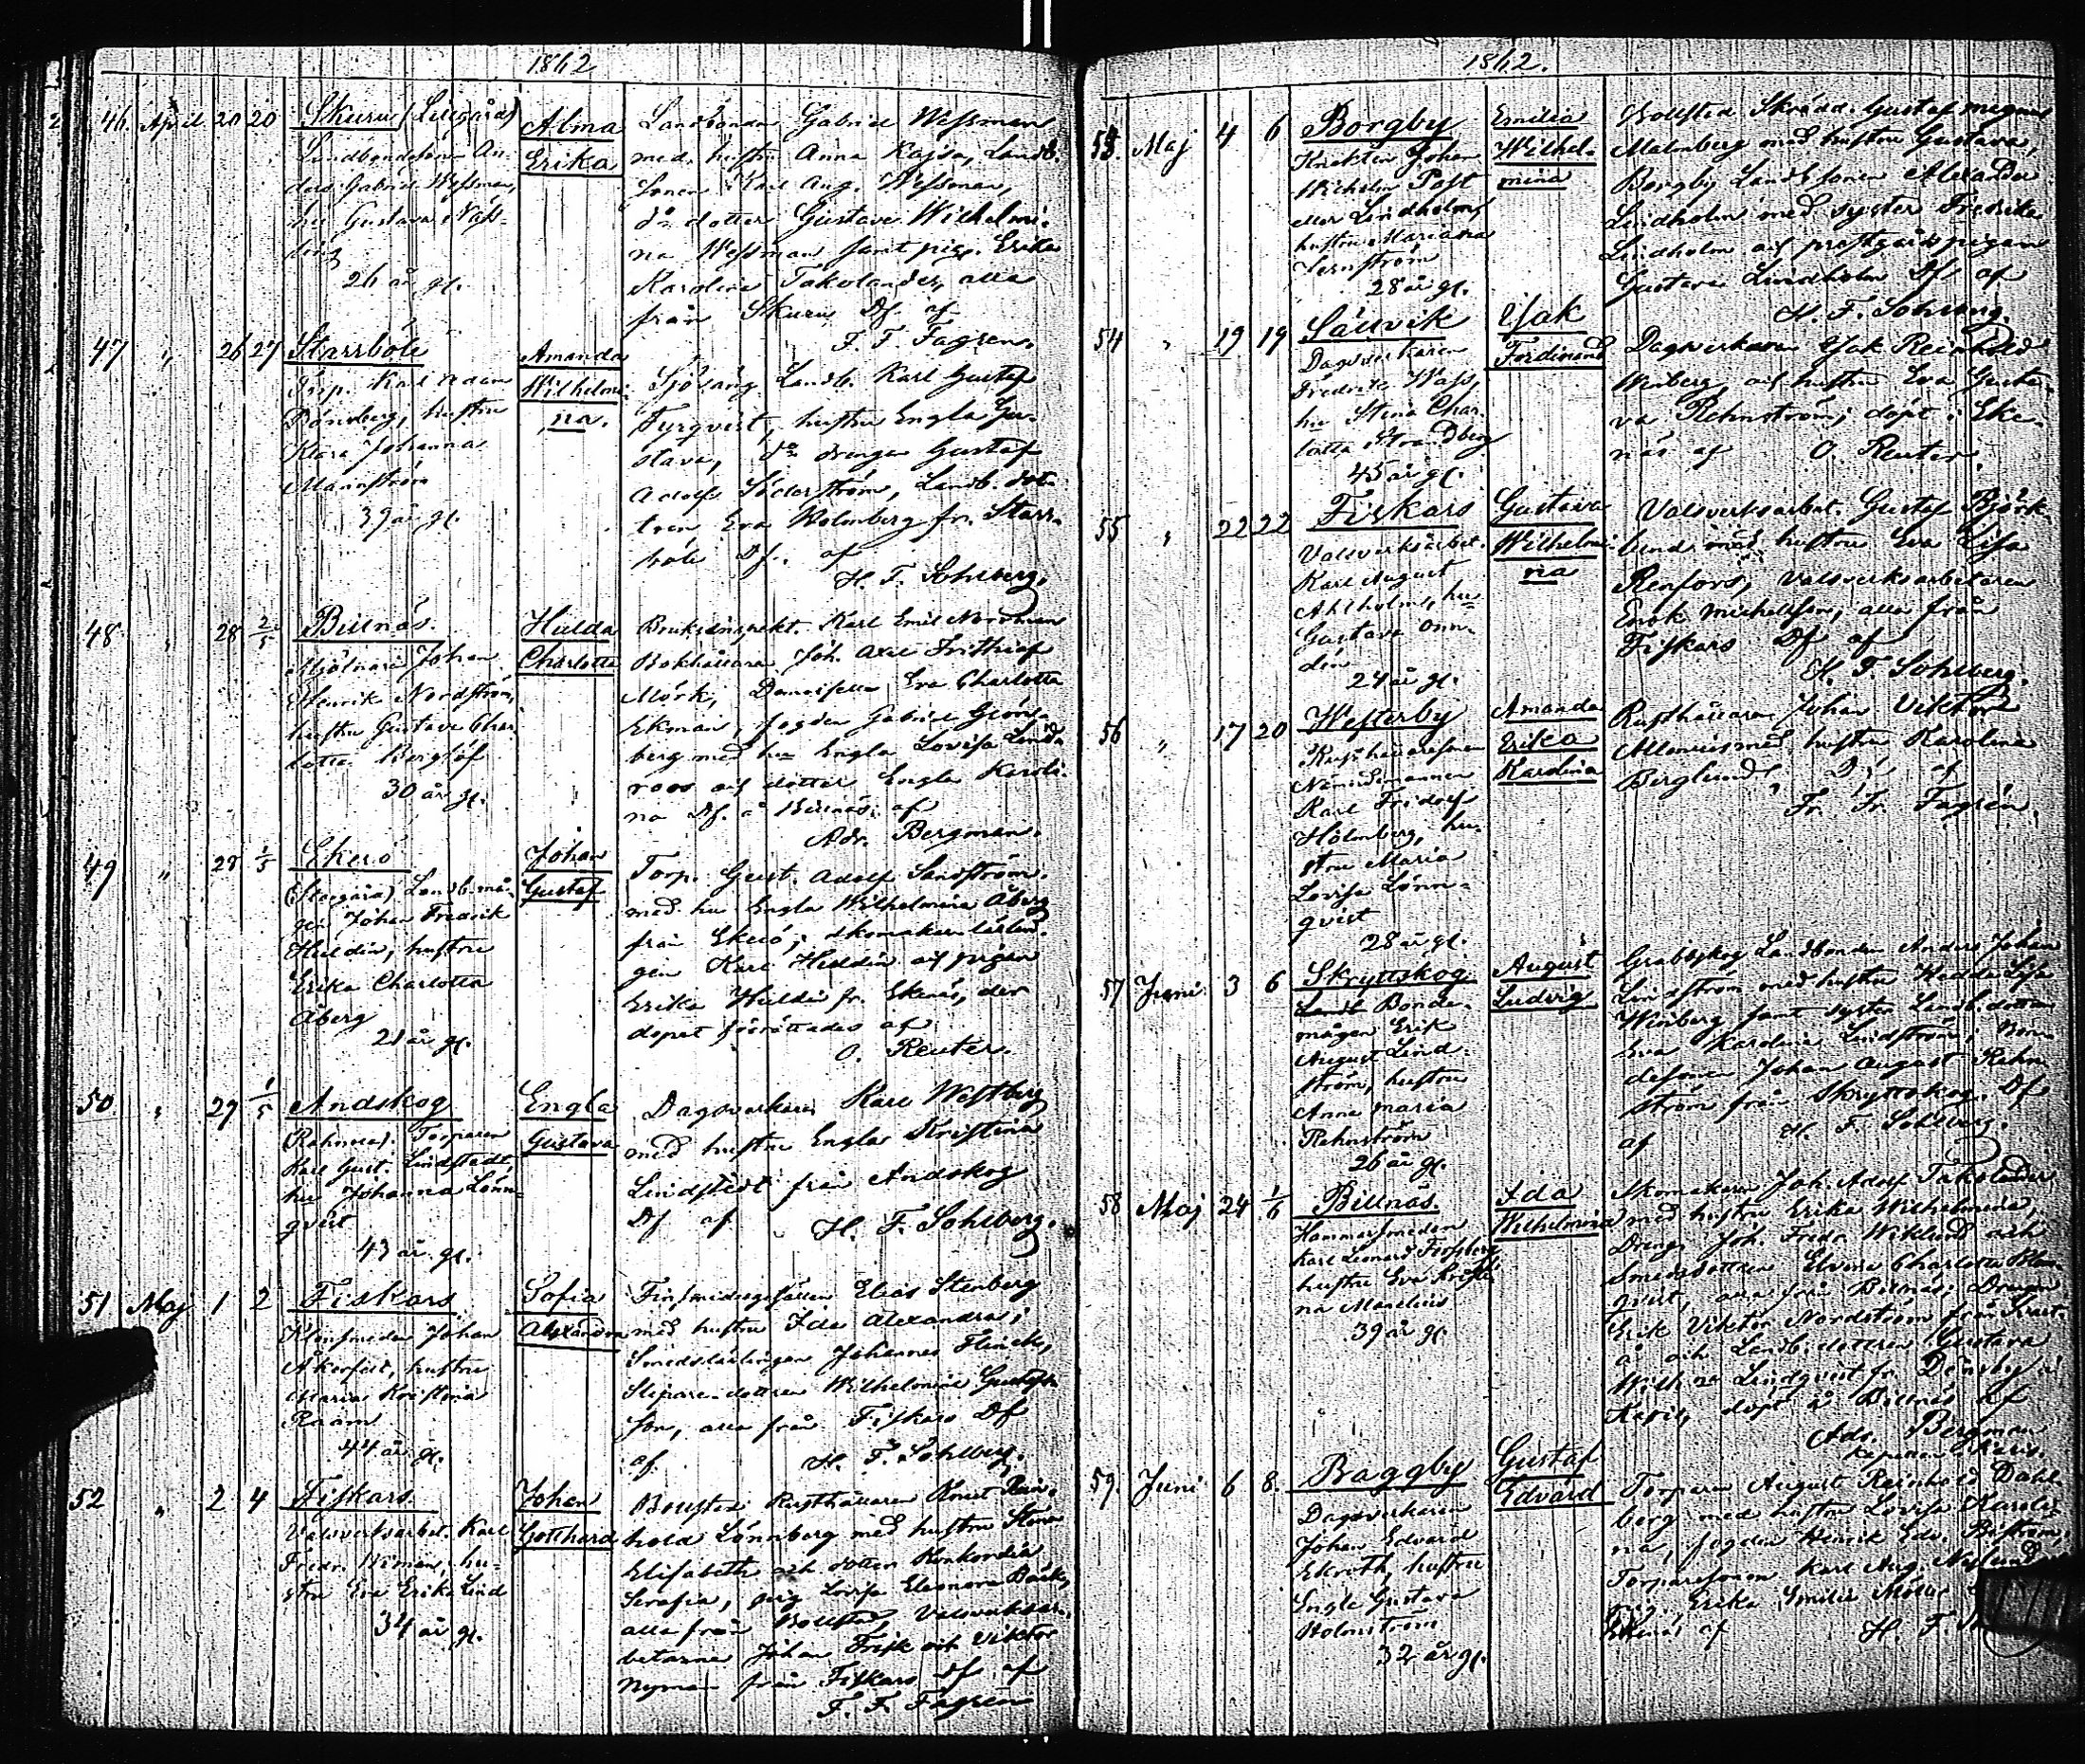 1862
46. April 20 20 Skuru (Lillgård)
Landbondesonen An-
ders Gabriel Wessman,
hu Gustava Näs-
26 år gl.
Alma
Erika
Landbonden Gabriel Wessman
med hustru Anna Kajsa, Landb.
sonen Karl Aug. Wessman,
do dotter Gustava Wilhelmi-
na Wessman samt pig. Erika
Karolina Takolander, alla
från Skuru Df. af
F. F. Fagrén.
47 " 26 27 Starrböle
Torp. Karl Adam
Dönsberg, hustru
Klara Johanna
Mannström
39 år gl.
Amanda
Wilhelmi-
na.
Sjösäng Landb. Karl Gustaf
Fyrqvist, hustru Engla Gu-
stava, do drengen Gustaf
Adolf Söderström, Landb. dot-
tren Eva Holmberg fr. Starr-
böle Df. af
H. F. Sohlberg.
48 " 28 2/5 Billnäs.
Mjölnare Johan
Henrik Nordström,
hustru Gustava Char-
lotta Berglöf
30 år gl.
Hulda
Charlotta
Bruksinspekt. Karl Emil Nordman
Bokhållare Joh. Axel Frithiof
Mörk, Demoiselle Eva Charlotta
Ekman, fogden Gabriel Grön-
berg med hu Engla Lovisa Lind-
roos och dotter Engla Karoli-
na Df. å Billnäs af
Adr. Bergman.
49 " 28 1/5 Ekerö
(Storgård) Landb. må-
gen Johan Fredrik
Huldin, hustru
Erika Charlotta
Åberg
21 år gl.
Johan
Gustaf
Torp. Gust. Adolf Sandström
med hu Engla Wilhelmina Åberg
från Ekerö; skomakarelärlin-
gen Karl Huldin och pigan
Erika Huldin fr. Ekenäs, der
dopet förrättades af
O. Reuter.
50 " 29 1/5 Andskog
Torparen
Karl Gust. Lindstedt,
hu Johanna Lönn-
qvist
43 år gl.
Engla
Gustava
Dagsverkaren Karl Westberg
med hustru Engla Kristina
Lindstedt från Andskog
Df af H. F. Sohlberg.
51 Maj 1 2 Fiskars
Klensmeden Johan
Åkerfelt, hustru
Maria Kristina
Raam
44 år gl.
Sofia
Alexandra
Finsmidesgesällen Elias Stenberg
med hustru Ida Alexandra;
Smedslärlingen Johannes Flinck,
Slipare-dottren Wilhelmina Gustafs-
son, alla från Fiskars Df
af H. F. Sohlberg.
52 " 2 4 Fiskars.
Valsverksarbet. Karl
Fredr. Niman, hu-
stru Eva Erika Lind
34 år gl.
Johan
Gotthard
Bollstad Rusthållaren Knut Rein-
hold Lönnberg med hustru Stina
Elisabeth och dotter Konkordia
Serafia, pig. Lovisa Eleonora Bäck,
alla från Bollstad Valsverksar-
betarne Johan Frisk och Viktor
Nyman från Fiskars Df af
F. F. Fagrén
1862.
53. Maj 4 6 Borgby
Knekten Johan
Wilhelm Post
eller Lindholm,
hustru Mariana
Jernström
28 år gl.
Emilia
Wilhel-
mina
Bollstad Skrädd. Gustaf Magnus
Malmberg med hustru Gustava,
Borgby Landb.sonen Alexander
Lindholm med syster Fredrika
Lindholm och prestgårdspigan
Gustava Lindholm Df af
H. F. Sohlberg.
54 " 19 19 Låuvik
Dagsverkaren
Fredrik Wass,
hu Stina Char-
lotta Strandberg
45 år gl.
Isak
Ferdinand
Dagsverkaren Isak Reinhold
Winberg och hustru Eva Gusta-
va Rehnström; döpt i Eke-
näs af O. Reuter.
55 " 22 22 Fiskars
Valsverksarbet.
Karl August
Ahlholm, hu
Gustava Onn-
dén
24 år gl.
Gustava
Wilhelmi-
na
Valsverksarbet. Gustaf Björk-
lund med hustru Eva Lisa
Renfors, valsverksarbetaren
Enok Michelsson, alla från
Fiskars Df af
H. F. Sohlberg.
56 " 17 20 Westerby
Rusthållaresonen
Nämndemannen
Karl Fridolf
Holmberg, hu-
stru Maria
Lovisa Lönn-
qvist
28 år gl.
Amanda
Erika
Karolina
Rusthållaren Johan Viktor
Allenius med hustru Karolina
Berglund Df af
Fr. Fr. Fagrén.
57 Juni 3 6 Skryttskog
Bonde-
mågen Erik
August Lind-
ström, hustru
Anna Maria
Rehnström
26 år gl.
August
Ludvig
Grabbskog Landbonden Anders Johan
Lindström med hustru Hedda Lisa
Winberg samt syster Landb.dotter
Eva Karolina Lindström; Bon-
desonen Johan August Rehn-
ström från Skryttskog. Df
af H. F. Sohlberg.
58 Maj 24 1/6 Billnäs.
Hammarsmeden
Karl Leonard Forsberg
hustru Eva Kristi-
na Marelius
39 år gl.
Ida
Wilhelmina
Skomakaren Joh. Adolf Takolander
med hustru Erika Wilhelmina,
Dreng Joh. Fredr. Wiklund och
Smedsdottren Elvira Charlotta Blom-
qvist, alla från Billnäs; Drengen
Erik Viktor Nordström från Svart-
å och Landb. dottren Gustava
Wilh:a Lindqvist fr. Dönsby i
Karis, döpt å Billnäs af
Adr. Bergman
59. Juni 6 8. Baggby
Dagsverkaren
Johan Edvard
Ekroth, hustru
Engla Gustava
Holmström
32 år gl.
Gustaf
Edvard
Torparen August Reinhold Dahl-
berg med hustru Lovisa Karoli-
na, fogden Henrik Edv. Boström,
Torparesonen Karl Aug. Nylund
pig. Erika Emilia
af H. F.